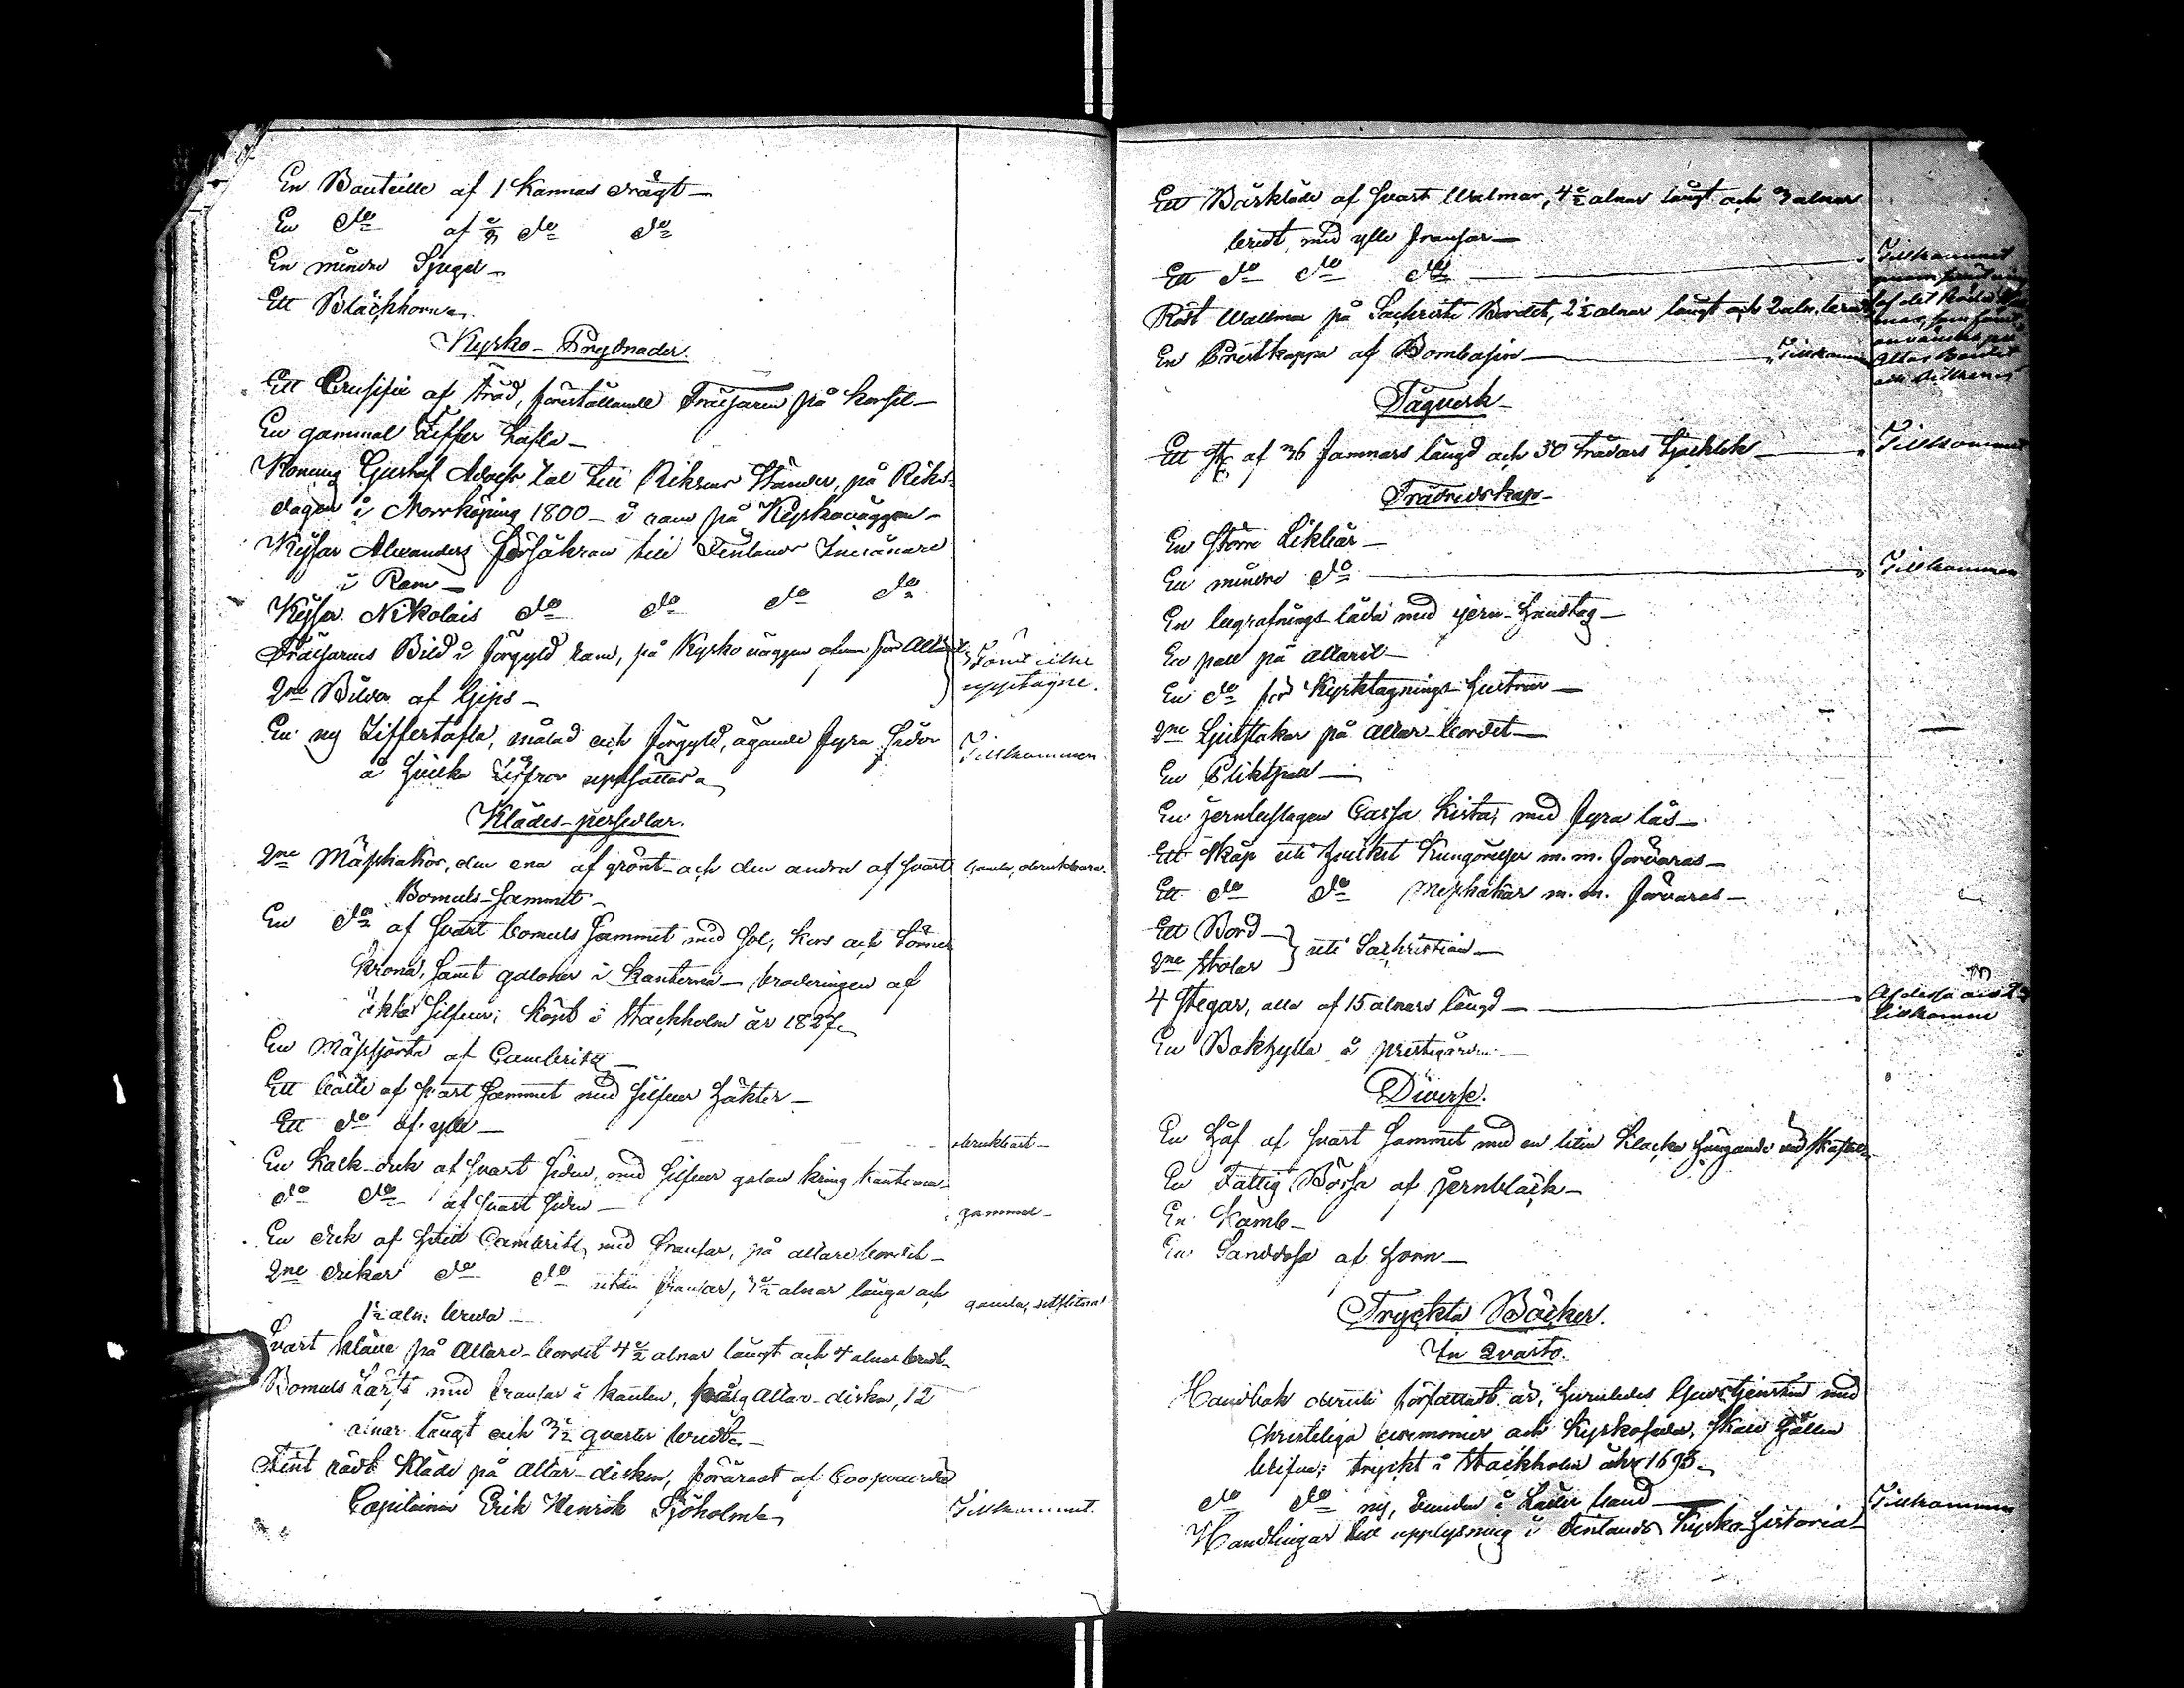 En Bouteille af 1 Kannas drägt —
En do af ½ do do
En mindre Spegel —
Ett Bläckhorn
Kyrko-Prydnader.
Ett Crusifix af träd, föreställande Frälsaren på korset —
En gammal Ziffer tafla —
Konung Gustaf Adolfs tal till Riksens Ständer, på Riks-
dagen i Norrköping 1800 — i ram på Kyrkoväggen —
Kejsar Alexanders Försäkran till Finlands Invånare
i Ram —
Kejsar Nikolais do do do do
Frälsarens Bild i förgyld ram, på Kyrkoväggen ofvan för Altaret
2ne Bilder af Gips —
upptagne.
En ny Ziffertafla, målad och förgyld, ägande fyra sidor
å hvilka Ziffror uppsättas
Tillkommen
Klädes-persedlar.
2ne Mässhakar, den ena af grönt och den andra af svart
Bomuls-sammet —
Gamla, obrukbara.
En do af svart bomuls sammet med sol, kors och törne
krona, samt galoner i kanterna — broderingen af
äkta silfver; köpt i Stockholm år 1827
En Mässkjorta af Cambrits —
Ett bälte af svart sammet med silfver häkter —
Ett do af ylle —
obrukbart —
En Kalk-duk af svart siden, med silfver galon kring kanterna —
do do af svart siden —
gammal —
En duk af hvit Cambrits, med fransar, på altare bordet —
2ne dukar do do utan fransar, 3½ alnar långa och
1½ aln. breda —
gamla, utslitna
Svart kläde på Altare-bordet 4½ alnar långt och 4 alnar bredt —
Bomuls Lärft med fransar i kanten, Altar-disken, 12
alnar långt och 3½ qvarter bredt —
Fint rödt Kläde på Altar-disken, föräradt af Coopvaerdie
Capitainen Erik Henrik Sjöholm
Tillkommit.
Ett Bårkläde af svart Walmar, 4½ alnar långt och 3 alnar
bredt, med ylle fransar —
Ett do do do —
Tillkommit
Rödt Wallmar på Sachristie Bordet, 2½ alnar långt och 2 aln. bredt
af det
Altar Bordet
En Prestkappa af Bombasin — Tillkommen
Tågverk —
Ett st. af 36 famnars längd och 30 trådars tjocklek —
Tillkommit
Trädredskap —
En större Likbår —
En mindre do —
Tillkommen
En begrafnings-låda med jern-handtag —
En pall på altaret —
En do för Kyrktagnings-hustrur —
2ne Ljusstakar på altar-bordet —
En Pliktpall —
En jernbeslagen Cassa Kista, med fyra lås —
Ett skåp uti hvilket Kungörelser m. m. förvaras —
Ett do do Messhakar m. m. förvaras —
Ett Bord —
2ne stolar } uti Sachristian —
4 stegar, alla af 15 alnars längd —
Af dessa äro 3
tillkomne
En Bokhylla å prestegården —
Diverse.
En Håf af svart sammet med en liten Klocka hängande vid skaftet
En Fattig Bössa af jernbläck —
En Kamb —
En Sanddosa af horn —
Tryckta Böcker.
In Quarto.
Handbok deruti författadt är, huruledes Gudstjensten med
Christeliga ceremonier och Kyrkoseder, skall hållen
blifva; tryckt i Stockholm åhr 1693
do do ny, bunden i Läder band —
Tillkommen
Handlingar till upplysning i Finlands Kyrko-historia —